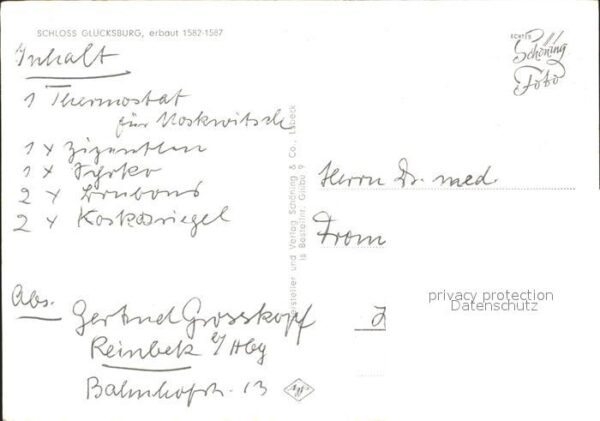 SCHLOSS GLÜCKSBURG, erbaut 1582-1587
Inhalt
1 Thermostat
für Moskwitsch
1 x
1 x
2 x Bonbons
2 x
Abs. Gertrud Grosskopf
Reinbek b/Hbg
Bahnhofstr. 13
Hersteller und Verlag Schöning & Co., Lübeck
Bestellnr. Glübu 9
ECHTES
Schöning
Foto
Herrn Dr. med.
From
privacy protection
Datenschutz
Agfa